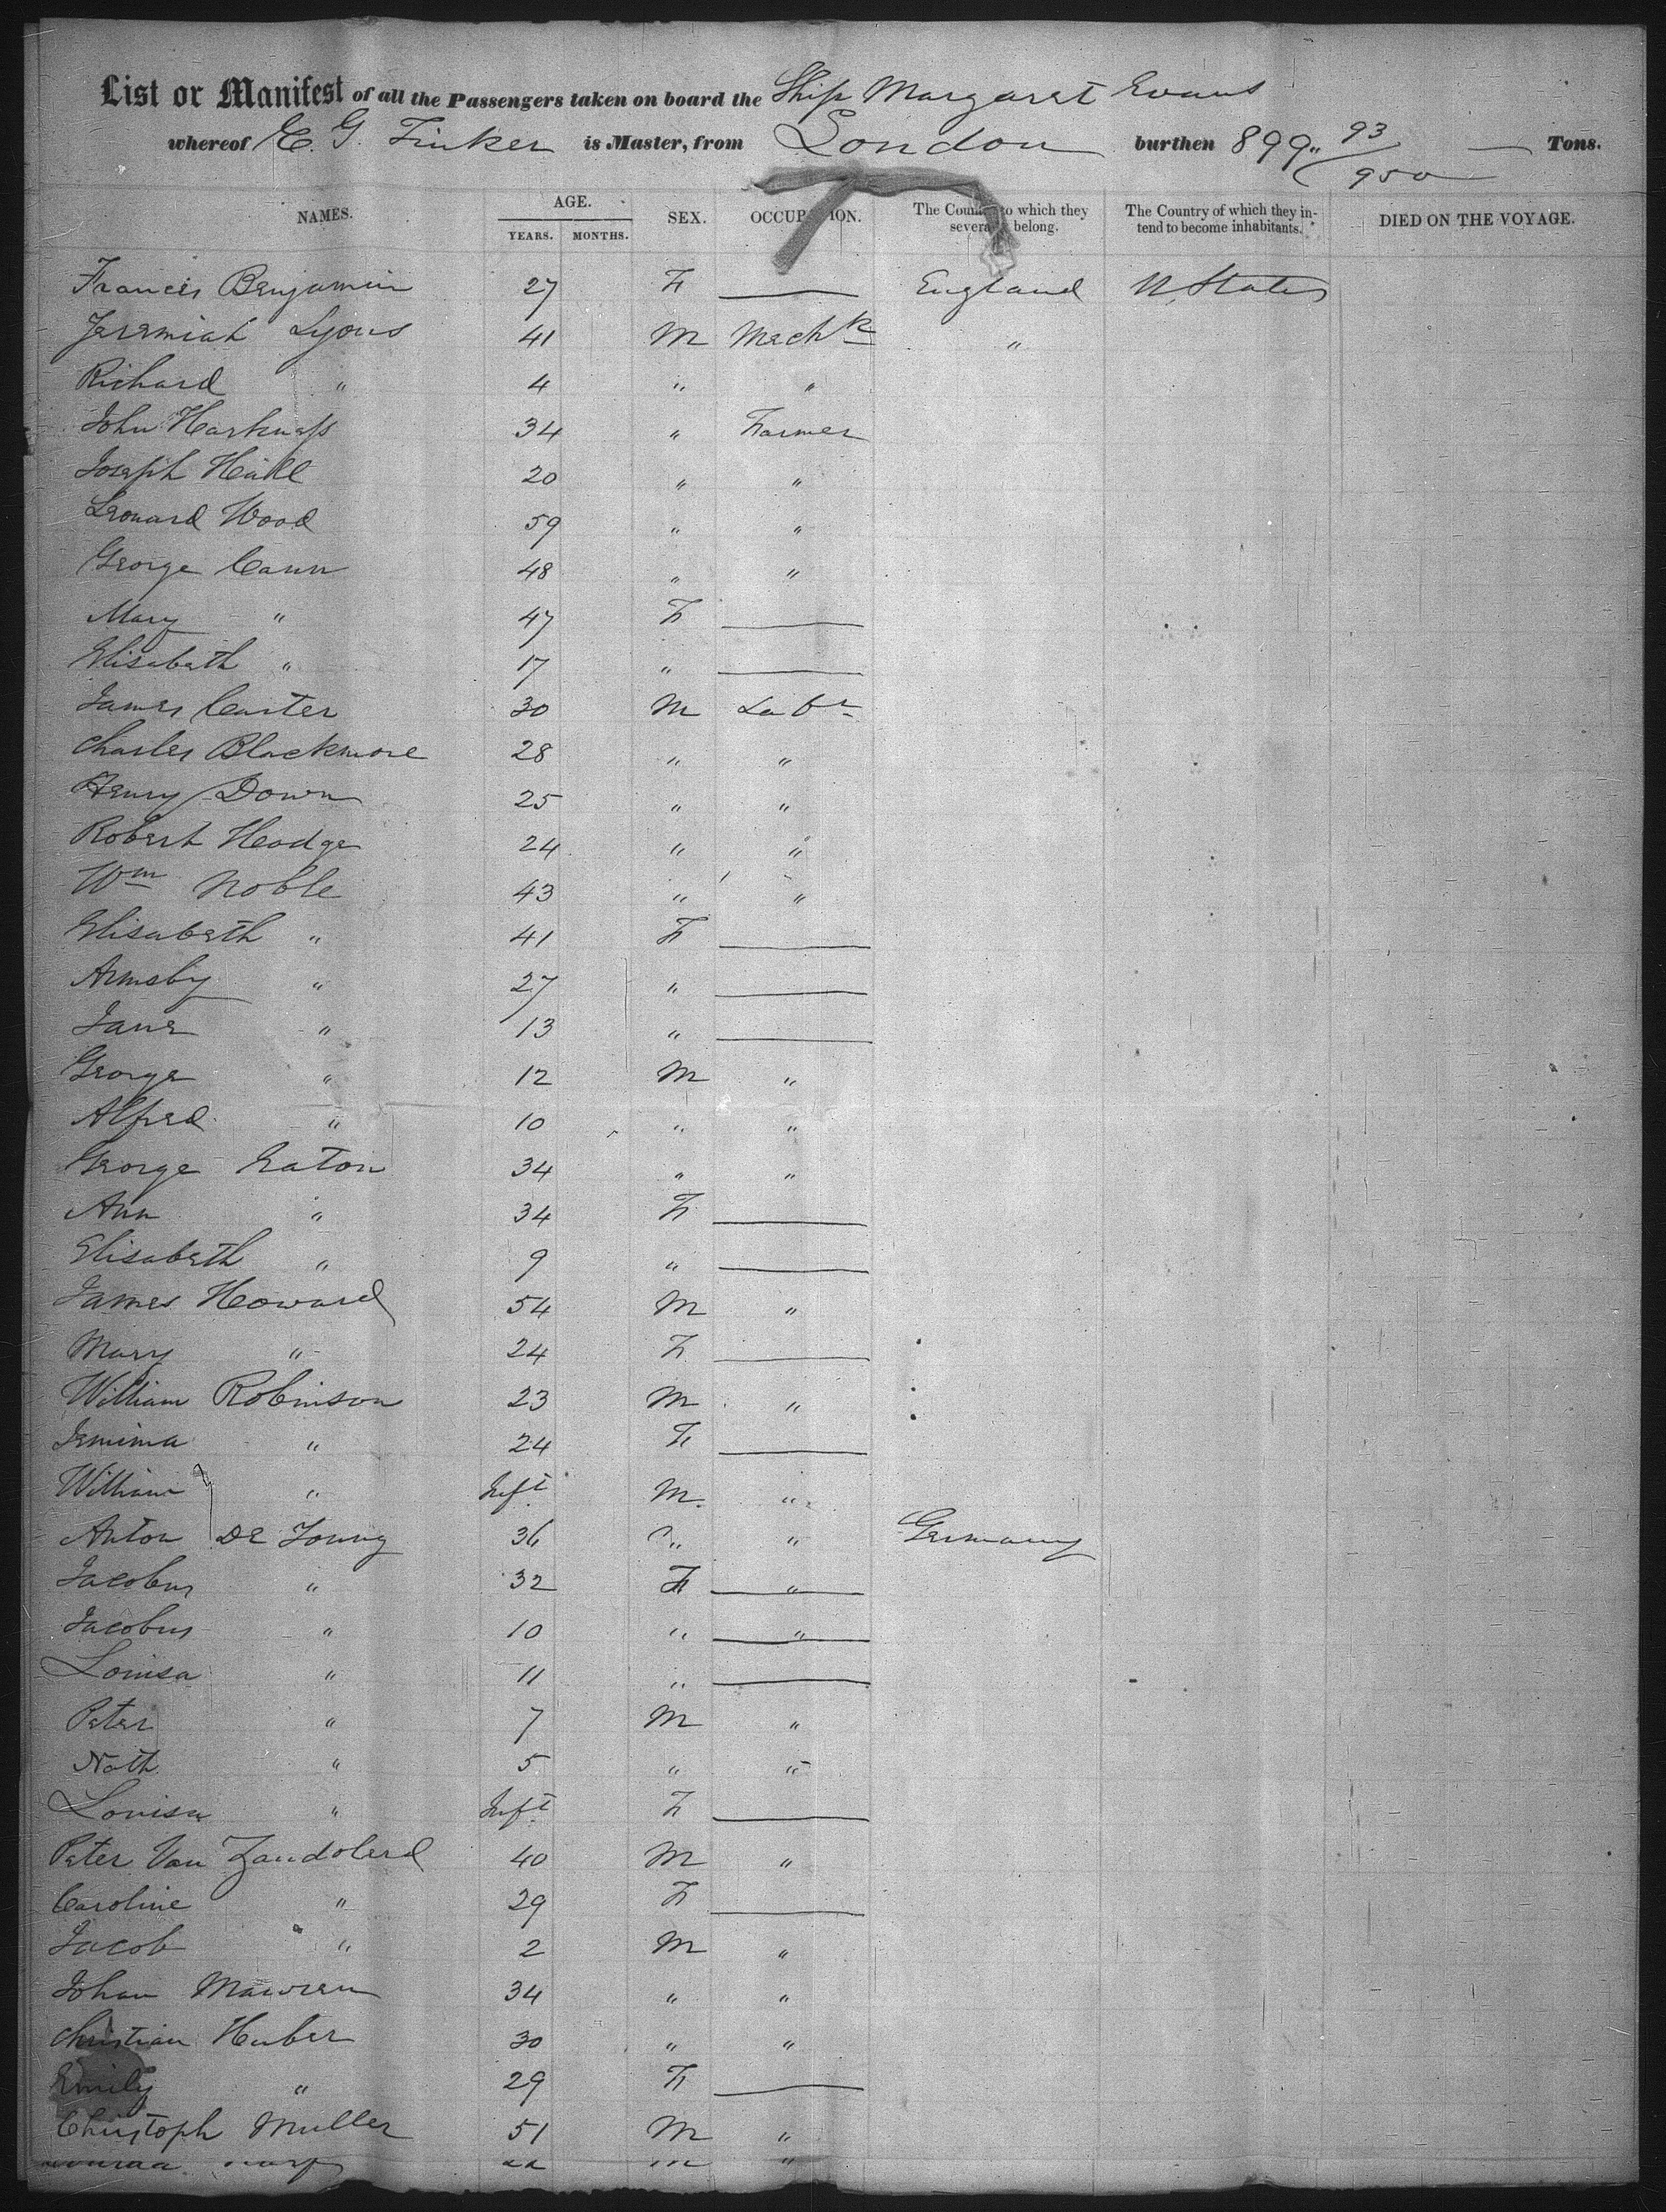 List or Manifest of all the Passengers taken on board the Ship Margaret Evans
whereof E. G. Tinker is Master, from London burthen 899 93/950 Tons.
NAMES. AGE. YEARS. MONTHS. SEX. OCCUPATION. The Country to which they severally belong. The Country of which they intend to become inhabitants. DIED ON THE VOYAGE.
Francis Benjamin 27 F — England U. States
Jeremiah Lyons 41 M Mechk "
Richard " 4 " "
John Harkness 34 " Farmer
Joseph Hall 20 " "
Leonard Wood 59 " "
George Cann 48 " "
Mary " 47 F —
Elisabeth " 17 " —
James Carter 30 M Labr
Charles Blackmore 28 " "
Henry Down 25 " "
Robert Hodge 24 " "
Wm Noble 43 " "
Elisabeth " 41 F —
Armsby " 27 " —
Jane " 13 " —
George " 12 M "
Alfred " 10 " "
George Eaton 34 " "
Ann " 34 F —
Elisabeth " 9 " —
James Howard 54 M "
Mary " 24 F —
William Robinson 23 M "
Jemima " 24 F —
William " Inft M "
Anton De Young 36 " " Germany
Jacobus " 32 F "
Jacobus " 10 " "
Louisa " 11 " —
Peter " 7 M "
Nath " 5 " "
Louisa " Inft F —
Peter Van 40 M "
Caroline " 29 F —
Jacob " 2 M "
Johan 34 " "
Christian Huber 30 " "
Emily " 29 F —
Christoph Muller 51 M "